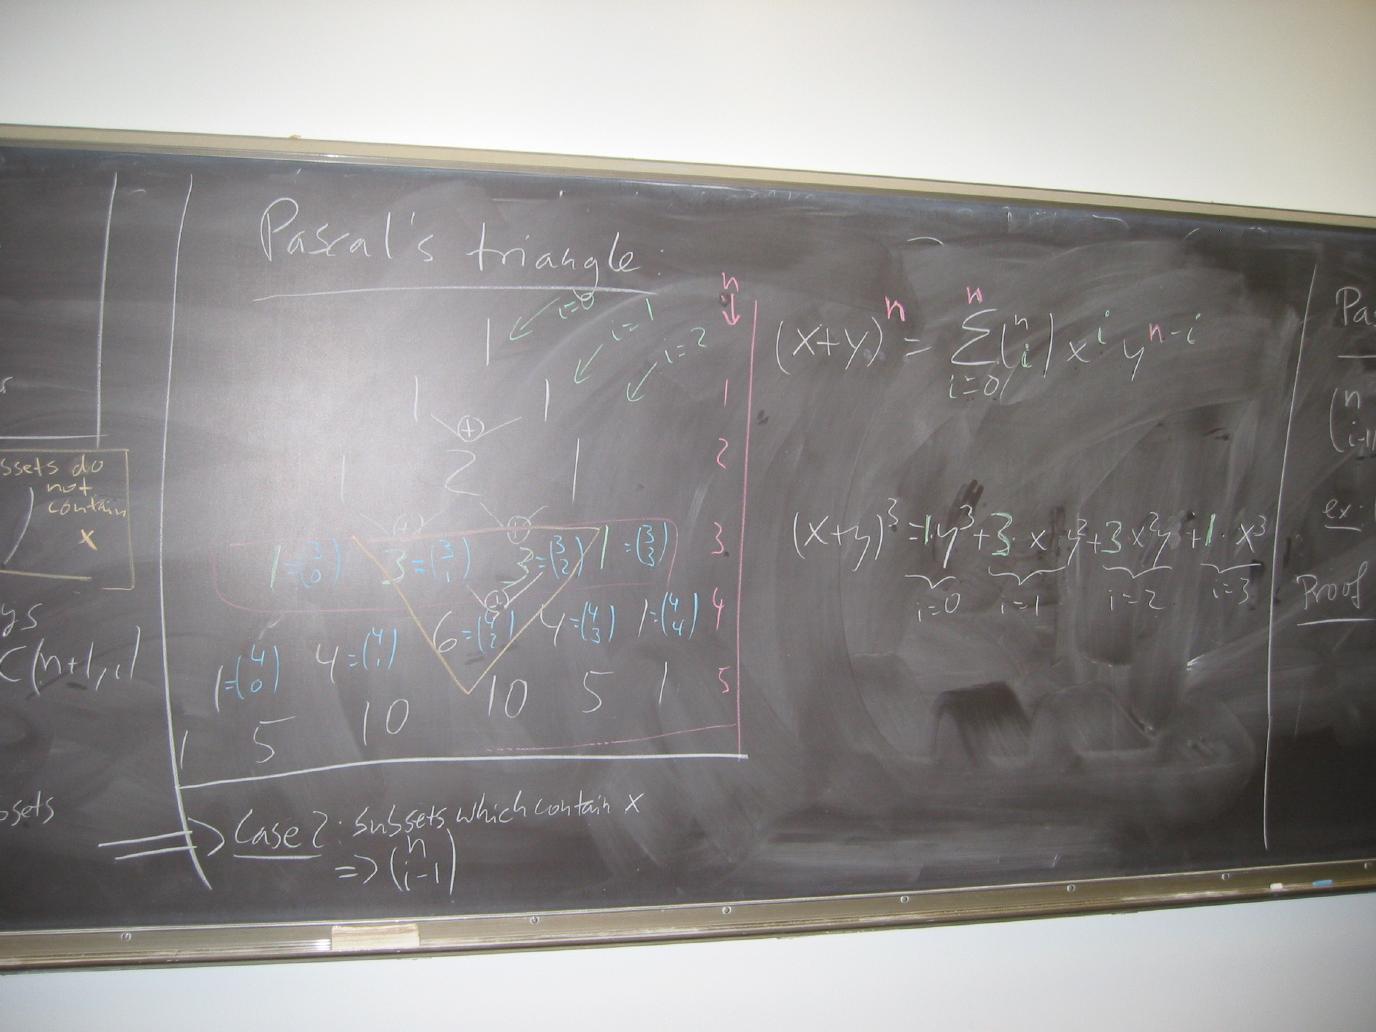 ssets do
not
contain
x
ys
C(n+1,i)
bsets
Pascal's triangle:
i=0 i=1 i=2
n
↓
1
1 1 1
⊕
1 2 1 2
⊕ ⊕
1=(3 0) 3=(3 1) 3=(3 2) 1=(3 3) 3
⊕
1=(4 0) 4=(4 1) 6=(4 2) 4=(4 3) 1=(4 4) 4
1 5 10 10 5 1 5
=> Case 2: subsets which contain x
=> (n i-1)
(x+y)^n = Σ_{i=0}^{n} (n i) x^i y^{n-i}
(x+y)^3 = 1·y^3 + 3·x y^2 + 3x^2y + 1·x^3
i=0 i=1 i=2 i=3
Pas
(n
i-1)
ex:
Proof